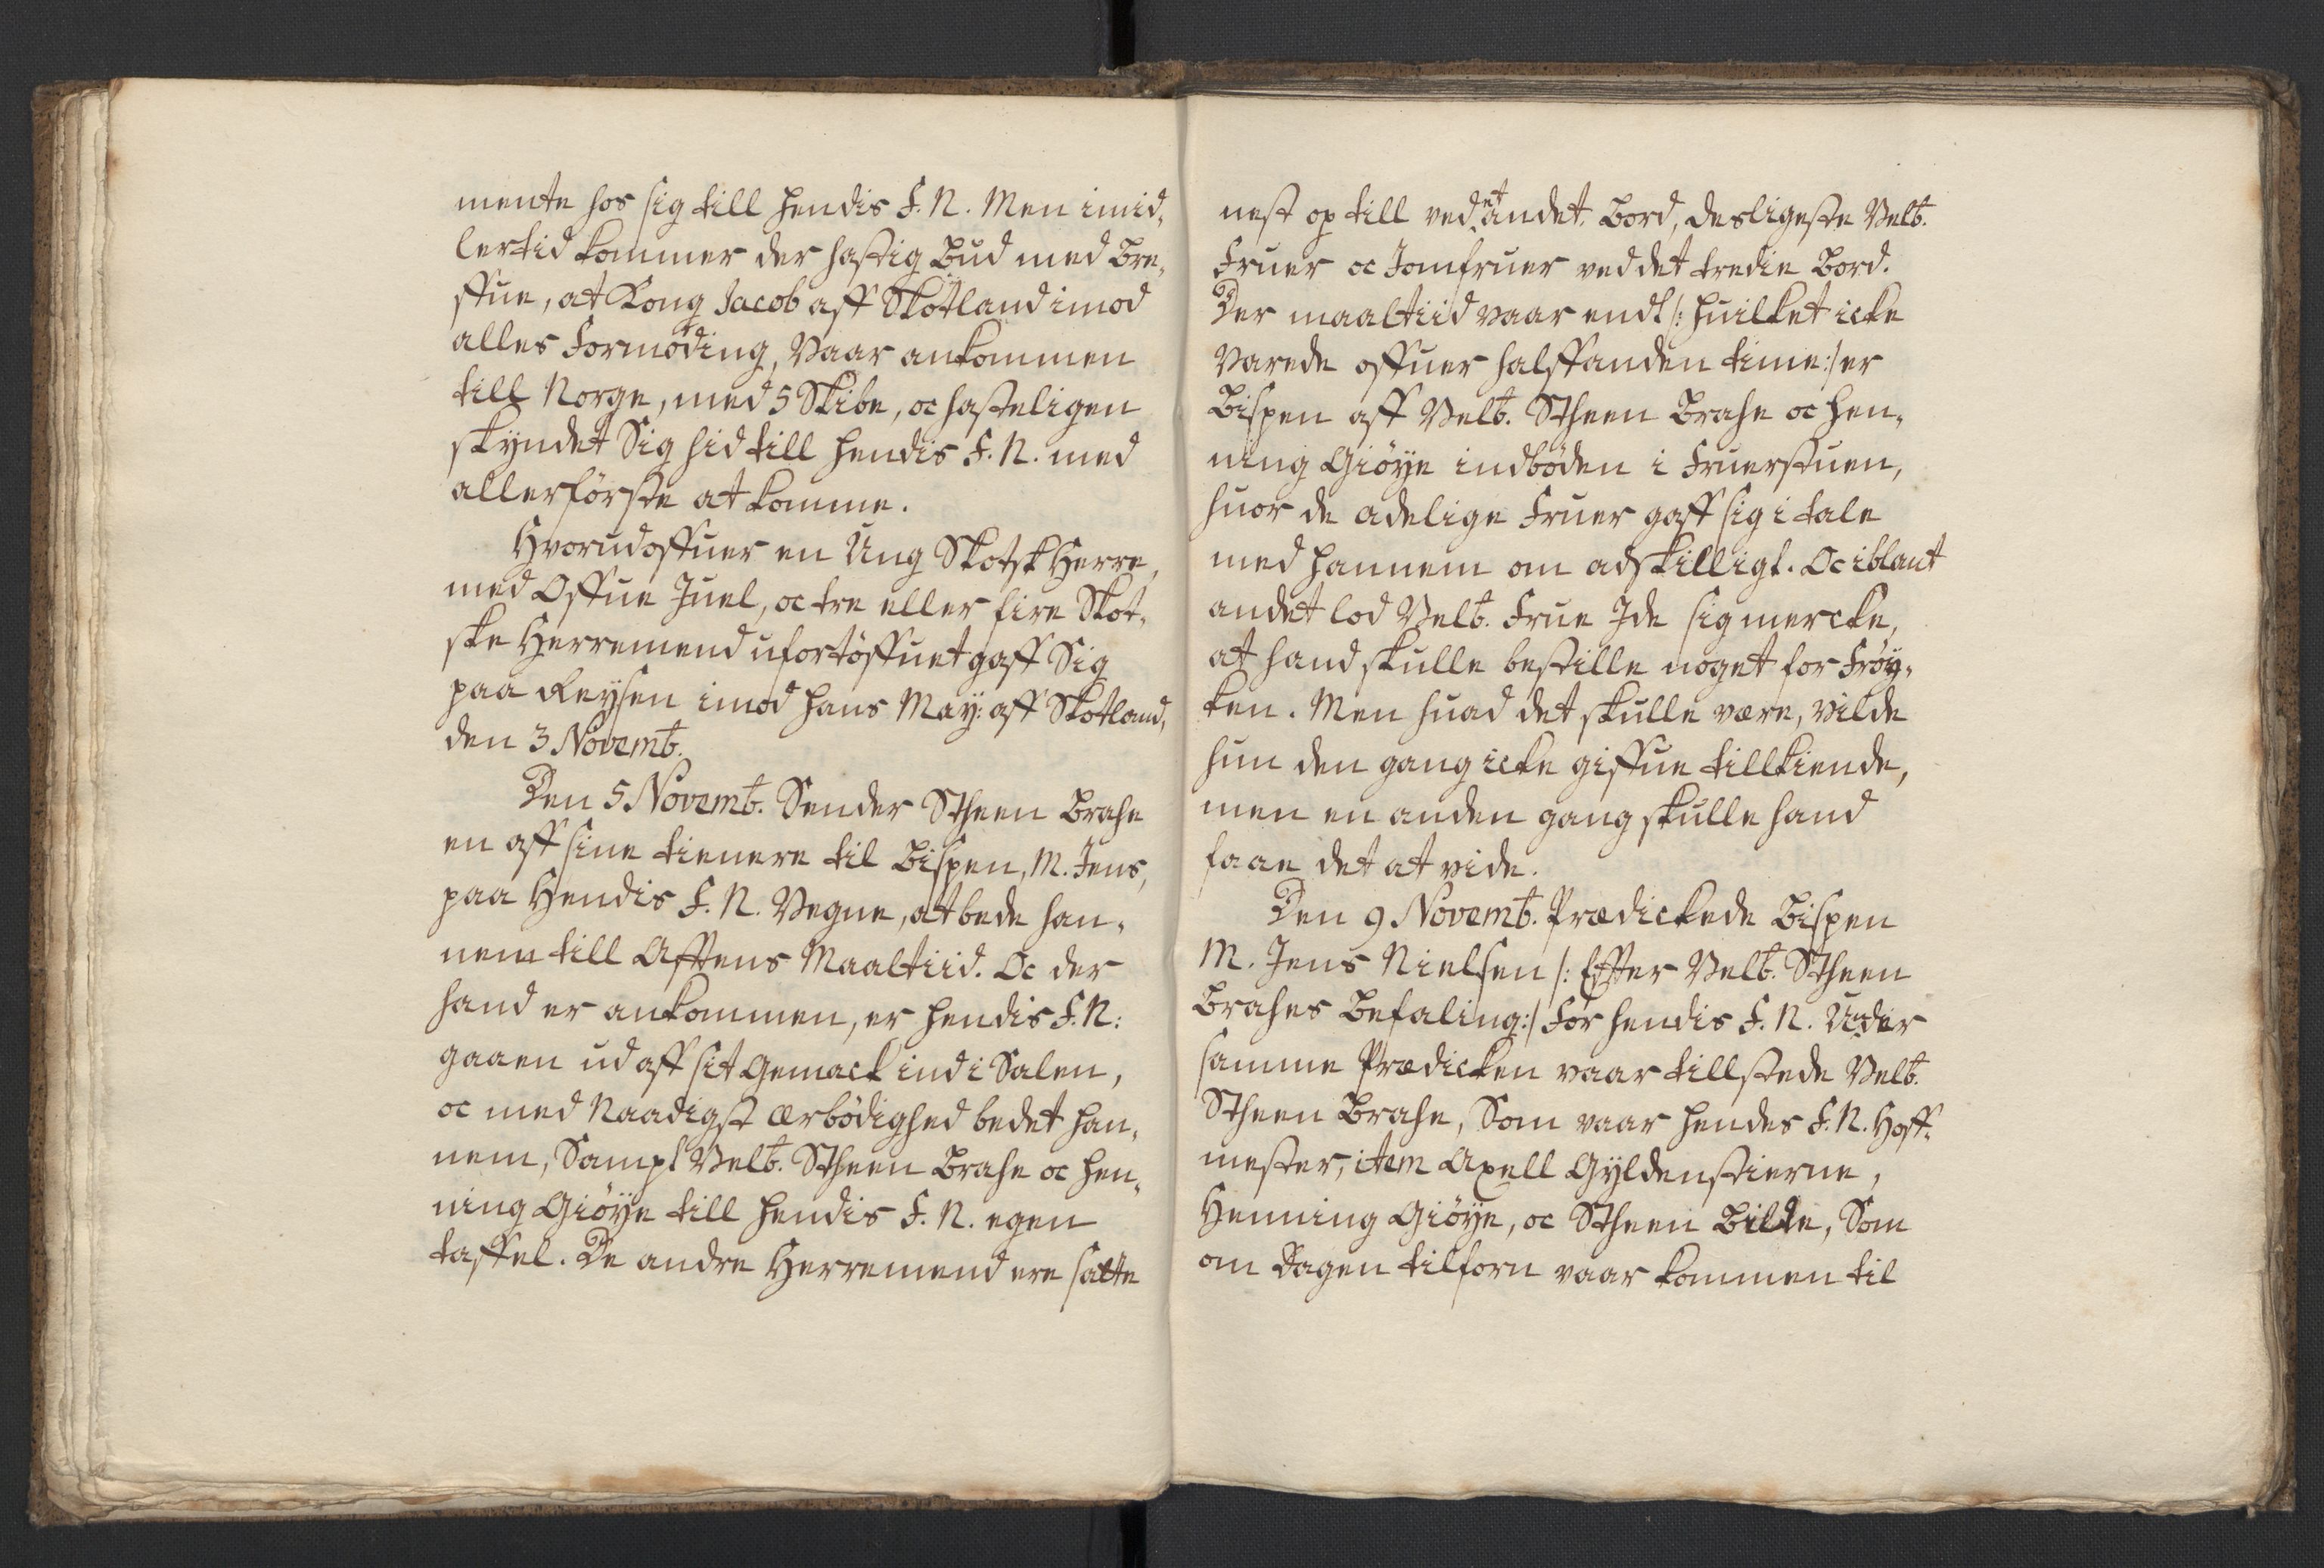 mente hos sig till hendis F. N. Men imid,
lertid kommer der hastig Bud med Bre,
ffue, at Kong Jacob aff Skotland imod
alles Formoding, Vaar ankommen
till Norge, med 5 Skibe, oc hasteligen
skyndet Sig hid till hendis F. N. med
allerførste at komme.
Hvorudoffuer en Ung Skotsk Herre,
med Offue Juel, oc tre eller fire Skot,
ske Herremend ufortøffuet gaff Sig
paa Reysen imod hans May: aff Skotland,
den 3 Novemb.
Den 5 Novemb. Sender Stheen Brahe
en aff sine tienere til Bispen, M. Jens,
paa Hendis F. N. Vegne, at bede han,
nem till Afftens Maaltiid. Oc der
hand er ankommen, er hendis F. N:
gaaen ud aff sit Gemack ind i Salen,
oc med Naadigst ærbødighed bedet han,
nem, Sampt Velb. Stheen Brahe oc Hen,
ning Giøye till hendis F. N. egen
taffel. De andre Herremend ere satte
nest op till ved et andet Bord, desligeste Velb.
Fruer oc Jomfruer ved det tredie Bord.
Der maaltiid vaar endt /: huilket icke
Varede offuer halffanden time :/ er
Bispen aff Velb. Stheen Brahe oc Hen,
ning Giøye indbøden i Fruerstuen,
huor de adelige Fruer gaff sig i tale
med hannem om adskilligt. Oc iblant
andet lod Velb. Frue Ide sig mercke,
at hand skulle bestille noget for Frøy,
ken. Men huad det skulle være, vilde
hun den gang icke giffue tillkiende,
men en anden gang skulle hand
faae det at vide.
Den 9 Novemb. Prædickede Bispen
M. Jens Nielsen /: Effter Velb. Stheen
Brahes Befaling :/ For hendis F. N. Under
samme Prædicken vaar tillstede Velb.
Stheen Brahe, Som vaar hendes F. N. Hoff,
mester, item Axell Gyldenstierne,
Henning Giøye, oc Stheen Bilde, Som
om Dagen tilforn vaar kommen til